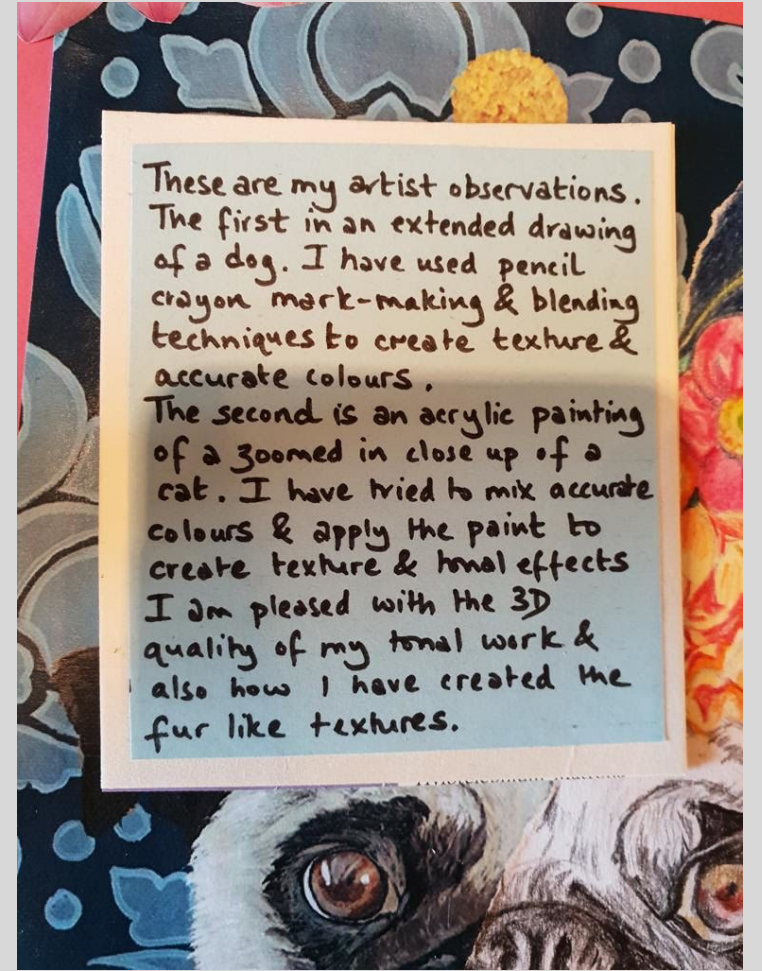 These are my artist observations.
The first in an extended drawing
of a dog. I have used pencil
crayon mark-making & blending
techniques to create texture &
accurate colours.
The second is an acrylic painting
of a zoomed in close up of a
cat. I have tried to mix accurate
colours & apply the paint to
create texture & tonal effects
I am pleased with the 3D
quality of my tonal work &
also how I have created the
fur like textures.